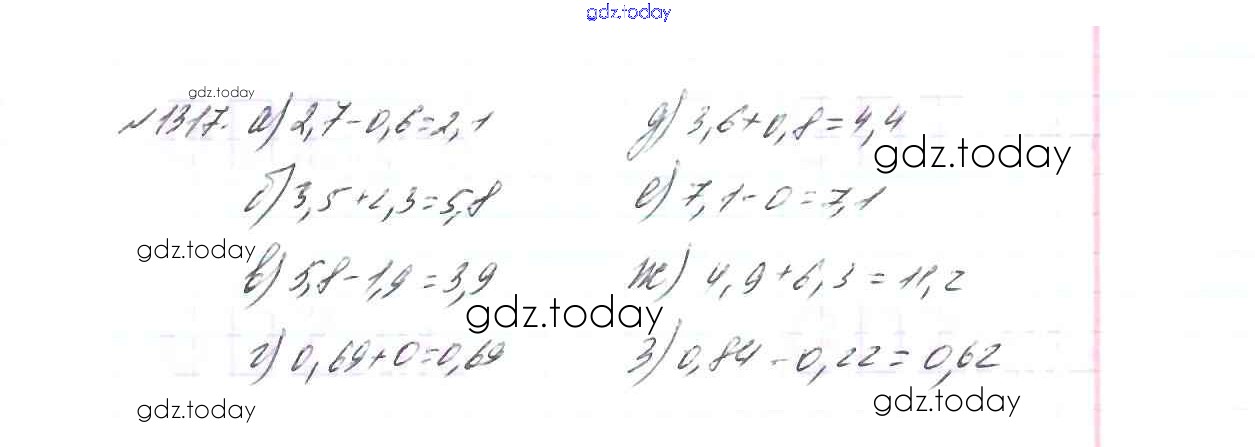 gdz.today
gdz.today
№1317. а) 2,7-0,6=2,1
б) 3,5+2,3=5,8
gdz.today
в) 5,8-1,9=3,9
gdz.today
г) 0,69+0=0,69
gdz.today
д) 3,6+0,8=4,4
gdz.today
е) 7,1-0=7,1
ж) 4,9+6,3=11,2
з) 0,84-0,22=0,62
gdz.today